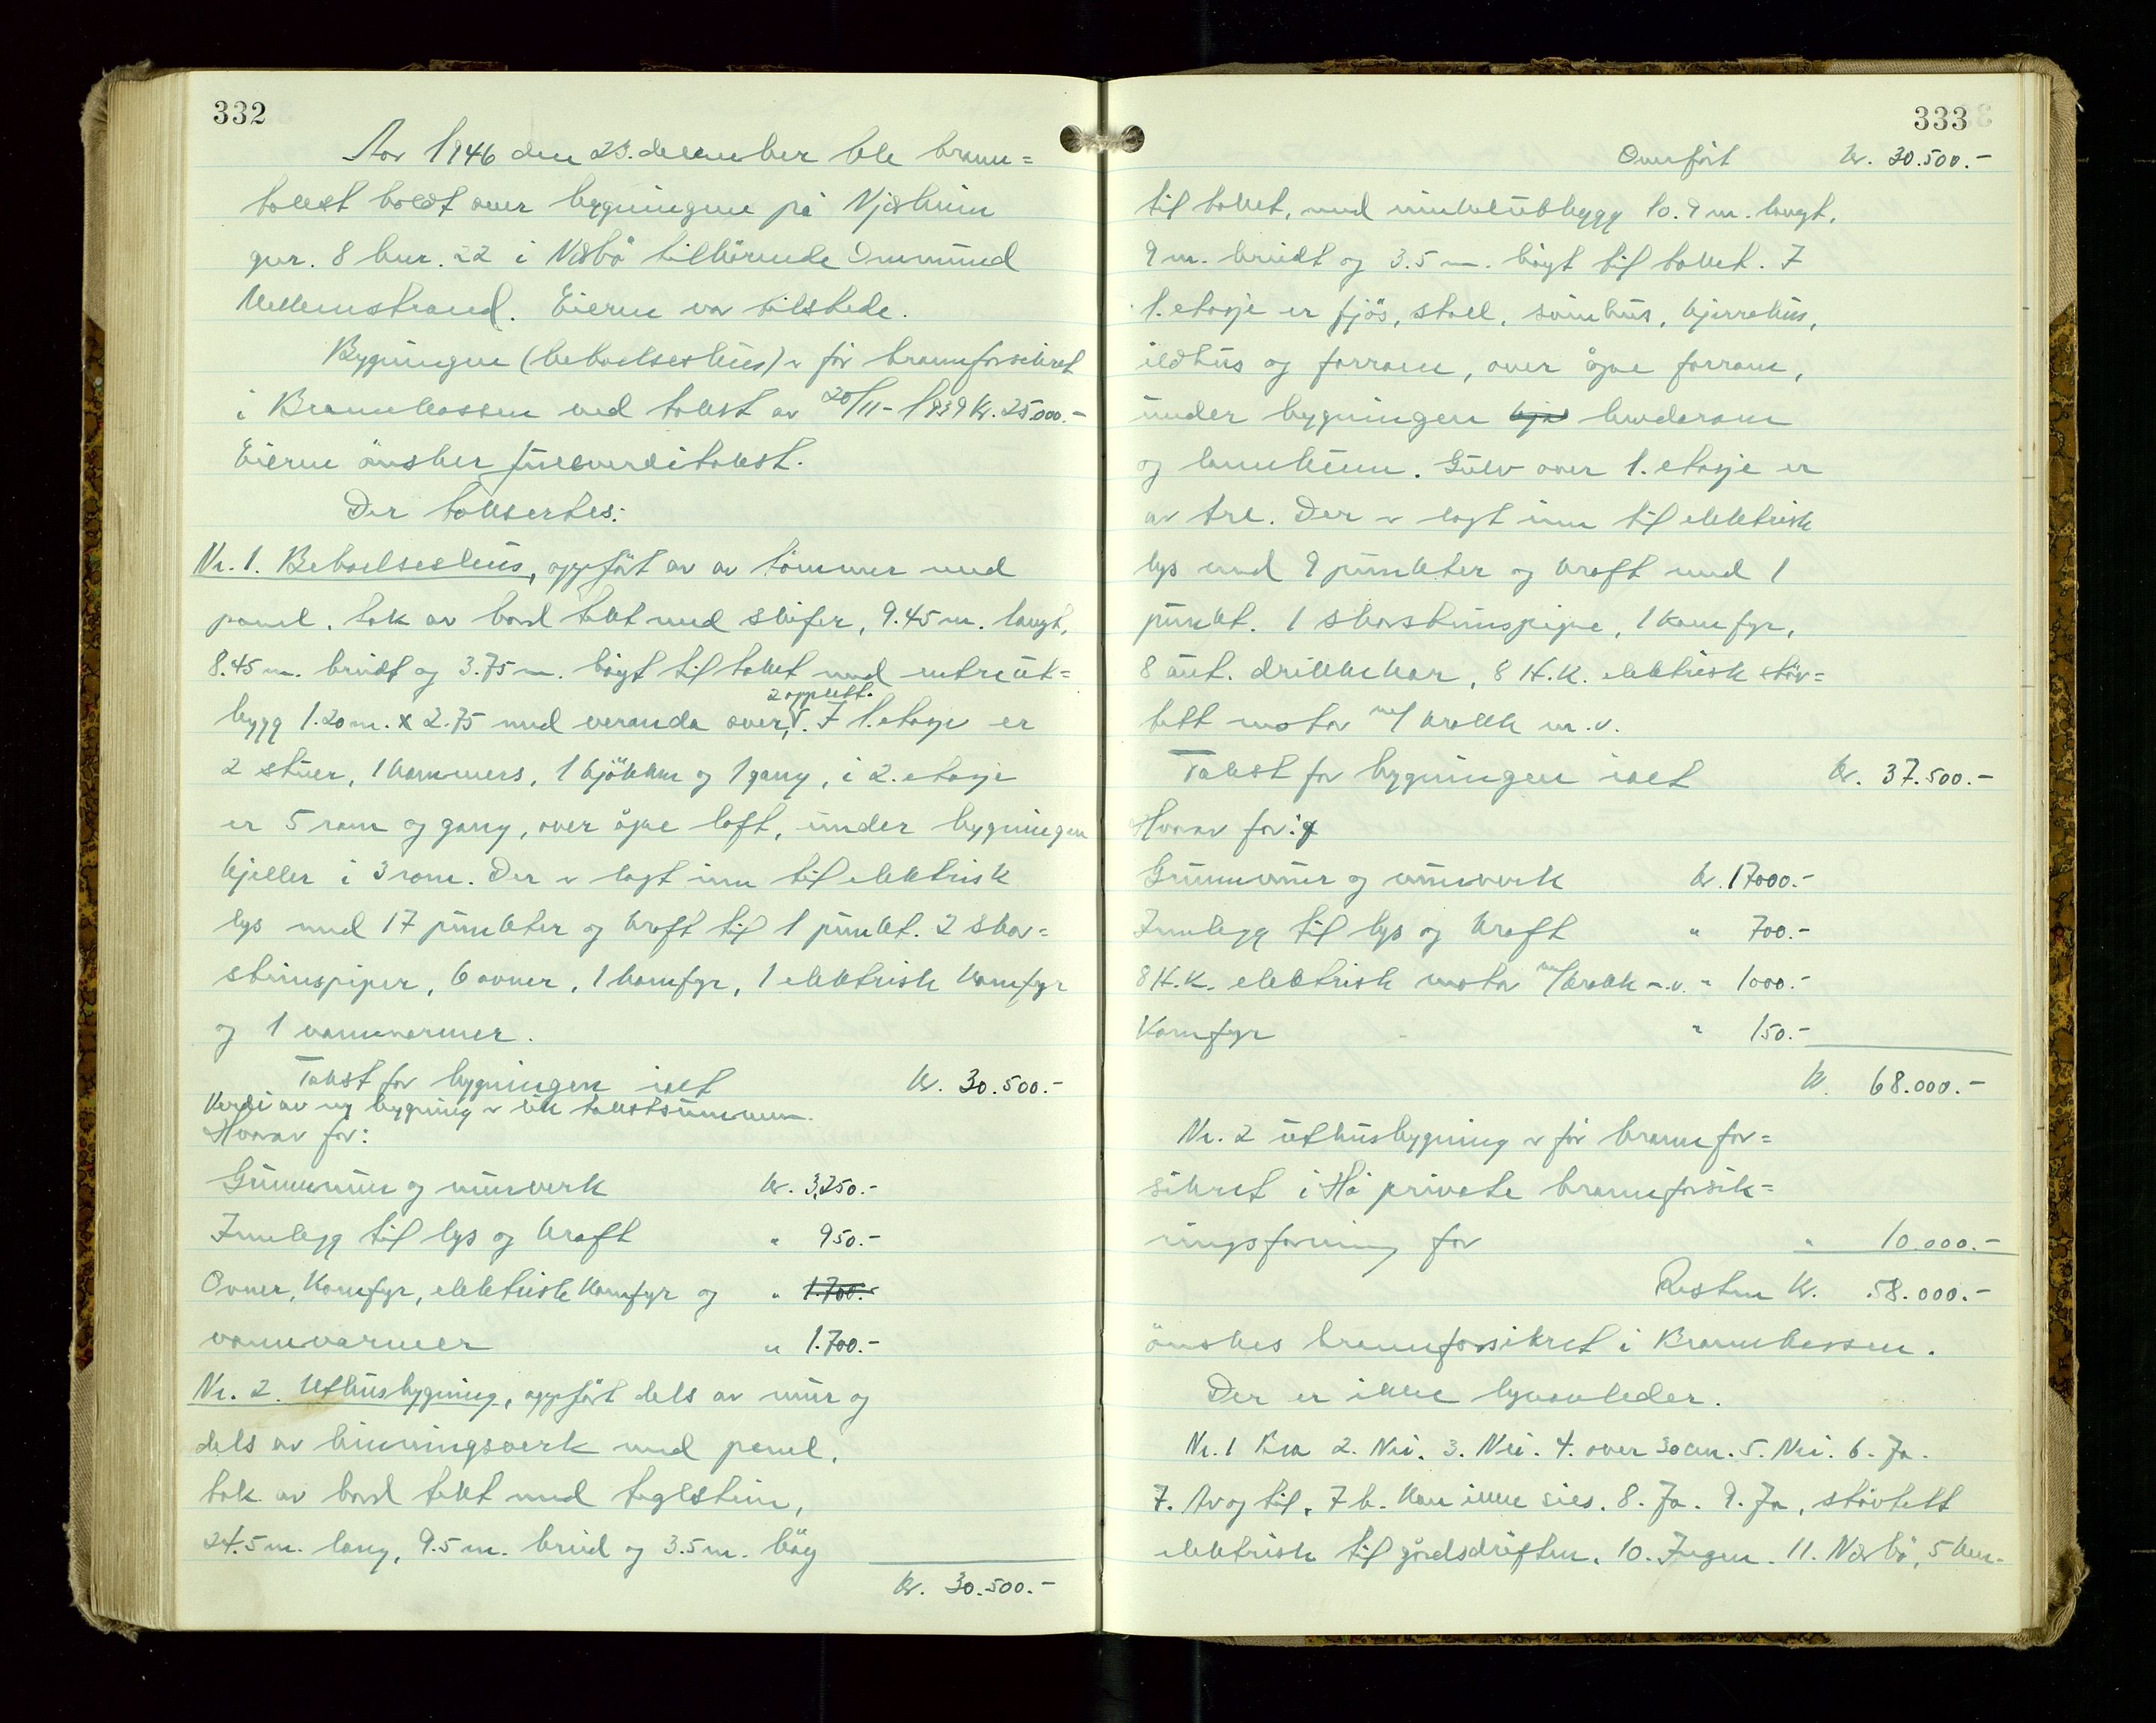 332
Aar 1946 den 23. desember ble brann=
takst holdt over bygningene på Njåheim
gnr. 8 bnr. 22 i Nærbö tilhörende Ommund
Mellemstrand. Eieren var tilstede.
Bygningen (beboelseshus) er för brannforsikret
i Brannkassen ved takst av 20/11-1939 Kr. 25000.-
Eieren önsker fullverditakst.
Der takseres:
Nr. 1. Beboelseshus, oppfört av av tömmer med
panel, tak av bord tekt med skifer, 9.45 m. langt,
8.45 m. bredt og 3.75 m. högt til taket med entreut=
2 opplett.
bygg 1.20 m. x 2.75 med veranda over, V. I 1. etasje er
2 stuer, 1 kammers, 1 kjökken og 1 gang, i 2. etasje
er 5 rom og gang, over åpne loft, under bygningen
kjeller i 3 rom. Der er lagt inn til elektrisk
lys med 17 punkter og kraft til 1 punkt. 2 skor=
stenspiper, 6 ovner, 1 komfyr, 1 elektrisk komfyr
og 1 vannvarmer.
Takst for bygningen ialt Kr. 30.500.-
Verdi av ny bygning er lik takstsummen.
Hvorav for:
Grunnmur og murverk Kr. 3,250.-
Innlegg til lys og kraft " 950.-
Ovner, komfyr, elektrisk komfyr og " 1.700.-
vannvarmer " 1.700.-
Nr. 2. Uthusbygning, oppfört dels av mur og
dels av binningsverk med panel,
tak av bord tekt med teglsten,
24.5 m. lang, 9.5 m. bred og 3.5 m. höy
Kr. 30.500.-
333
Overfört Kr. 30.500.-
til taket, med vinkelutbygg 10.9 m. langt,
9 m. bredt og 3.5 m. högt til taket. I
1. etasje er fjös, stall, svinhus, kjerrehus,
ildhus og forrom, over åpne forrom,
under bygningen kje landerom
og lannkum. Gulv over 1. etasje er
av tre. Der er lagt inn til elektrisk
lys med 9 punkter og kraft med 1
punkt. 1 skorstenspipe, 1 komfyr,
8 aut. drikkekar, 8 H.K. elektrisk stöv=
tett motor m/ krakk m.v.
Takst for bygningen ialt Kr. 37.500.-
Hvorav for:
Grunnmur og murverk Kr. 17000.-
Innlegg til lys og kraft " 700.-
8 H.K. elektrisk motor m/ krakk m.v. " 1000.-
Komfyr " 150.-
Kr. 68.000.-
Nr. 2 uthusbygning er för brannfor=
sikret i Hå private brannforsik=
ringsforening for " 10.000.-
Resten Kr. 58.000.-
önskes brannforsikret i Brannkassen.
Der er ikke lynavleder.
Nr. 1 Bra 2. Nei. 3. Nei. 4. over 30 cm. 5. Nei. 6. Ja.
7. Av og til, 7 b. Kan ikke sies. 8. Ja. 9. Ja, stövtett
elektrisk til gårdsdriften. 10. Ingen. 11. Nærbö, 5 km.